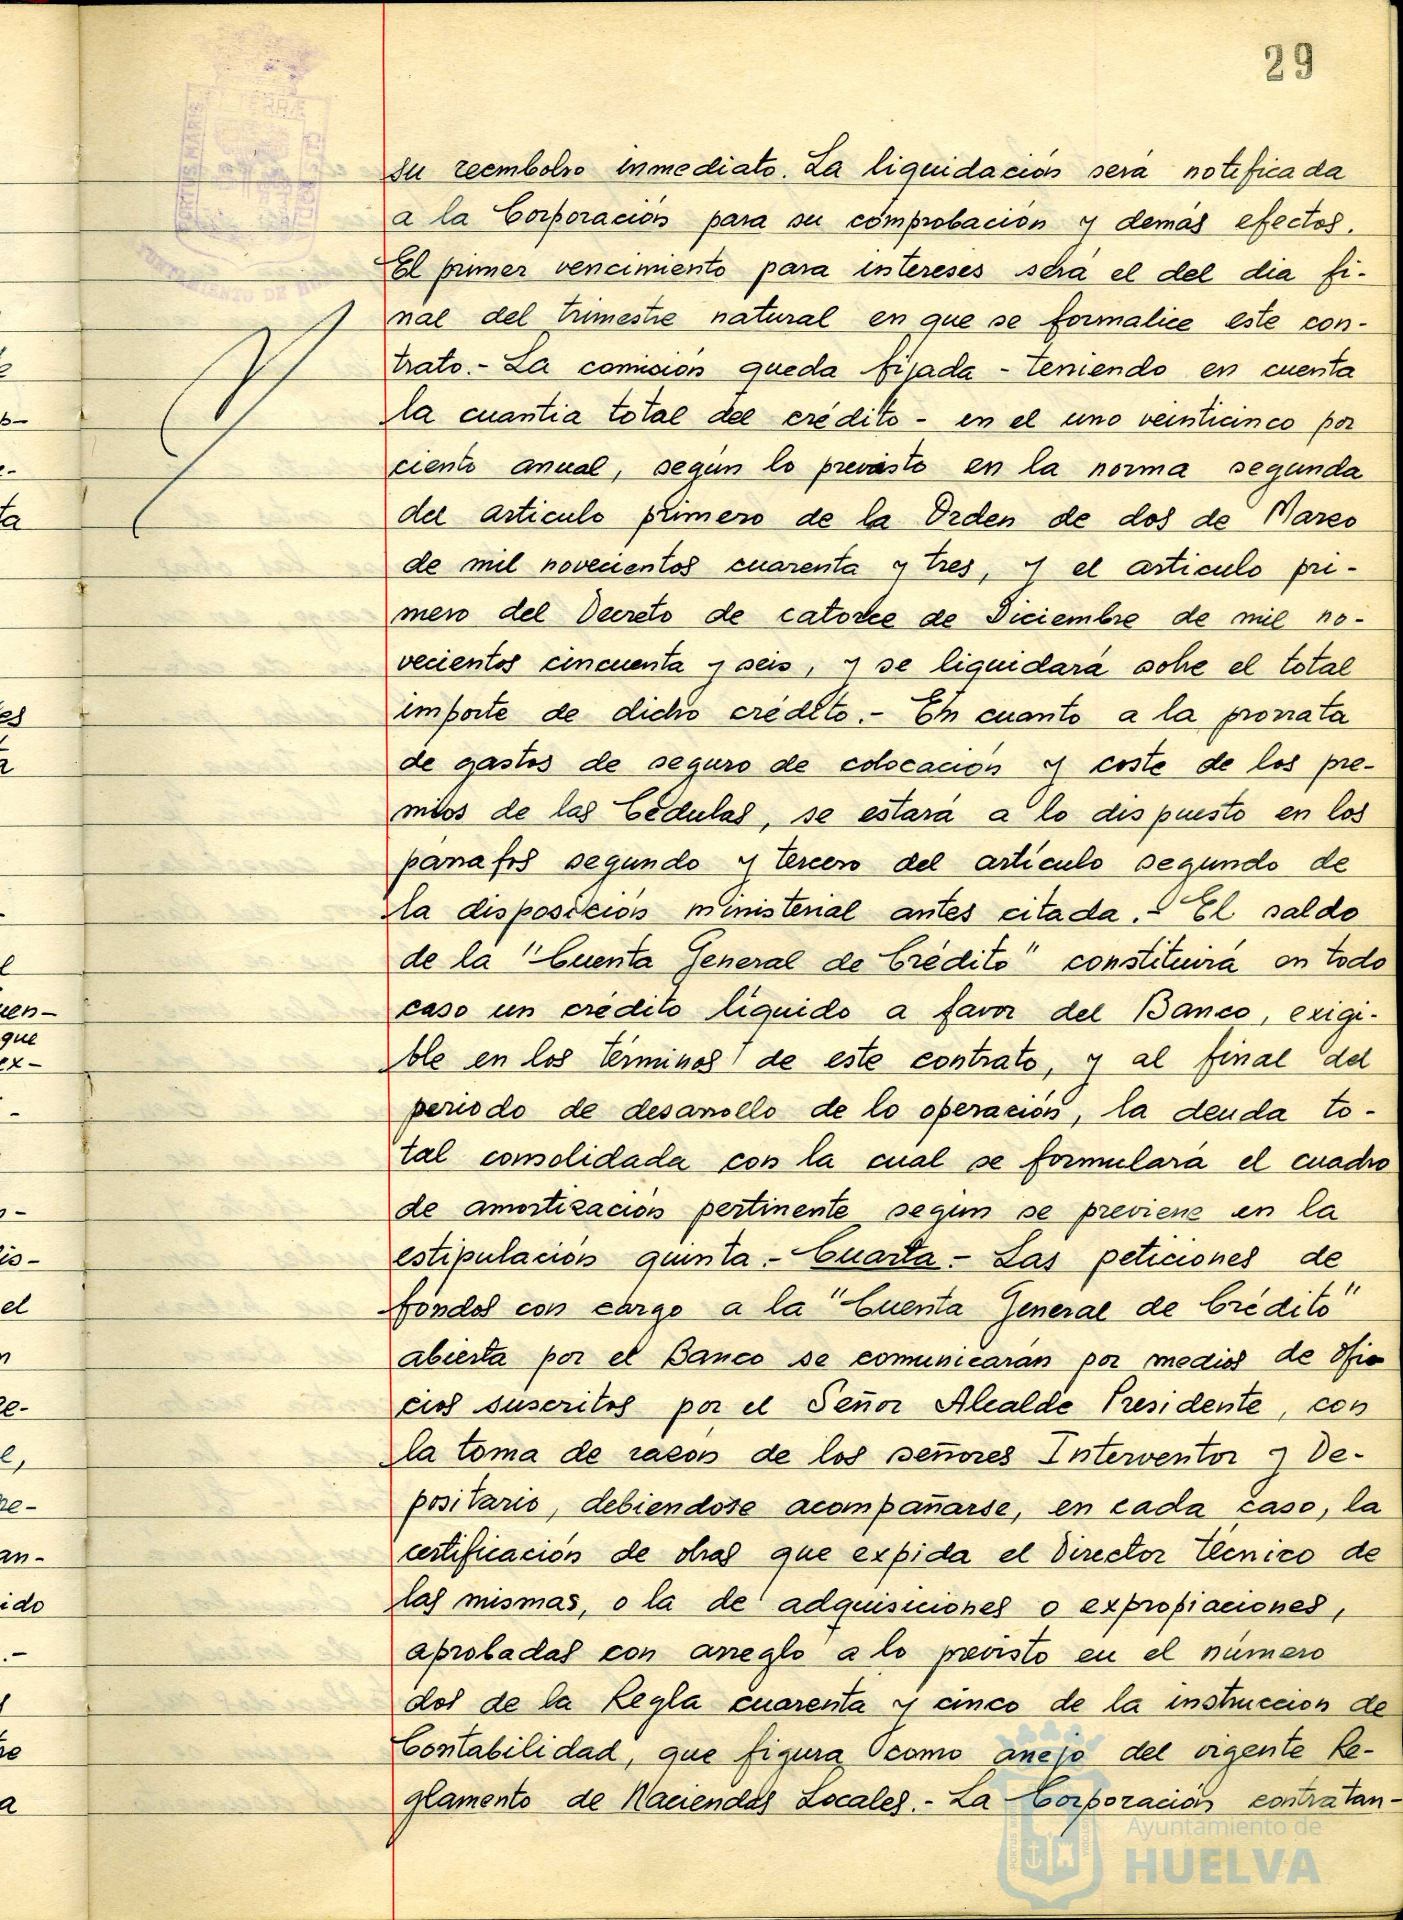 29
PORTUS MARIS
ET TERRÆ
CUSTODIA
AYUNTAMIENTO DE HUELVA
su reembolso inmediato. La liquidación será notificada
a la Corporación para su comprobación y demás efectos.
El primer vencimiento para intereses será el del dia fi-
nal del trimestre natural en que se formalice este con-
trato.- La comisión queda fijada - teniendo en cuenta
la cuantia total del crédito - en el uno veinticinco por
ciento anual, según lo previsto en la norma segunda
del articulo primero de la Orden de dos de Marzo
de mil novecientos cuarenta y tres, y el articulo pri-
mero del Decreto de catorce de Diciembre de mil no-
vecientos cincuenta y seis, y se liquidará sobre el total
importe de dicho crédito.- En cuanto a la prorrata
de gastos de seguro de colocación y coste de los pre-
mios de las Cédulas, se estará a lo dispuesto en los
párrafos segundo y tercero del artículo segundo de
la disposición ministerial antes citada.- El saldo
de la "Cuenta General de Crédito" constituirá en todo
caso un crédito líquido a favor del Banco, exigi-
ble en los términos de este contrato, y al final del
periodo de desarrollo de lo operación, la deuda to-
tal consolidada con la cual se formulará el cuadro
de amortización pertinente según se previene en la
estipulación quinta.- Cuarta.- Las peticiones de
fondos con cargo a la "Cuenta General de Crédito"
abierta por el Banco se comunicarán por medios de ofi-
cios suscritos por el Señor Alcalde Presidente, con
la toma de razón de los señores Interventor y De-
positario, debiendose acompañarse, en cada caso, la
certificación de obras que expida el Director Técnico de
las mismas, o la de adquisiciones o expropiaciones,
aprobadas con arreglo a lo previsto en el número
dos de la Regla cuarenta y cinco de la instruccion de
Contabilidad, que figura como anejo del vigente Re-
glamento de Haciendas Locales.- La Corporación contratan-
Ayuntamiento de
HUELVA